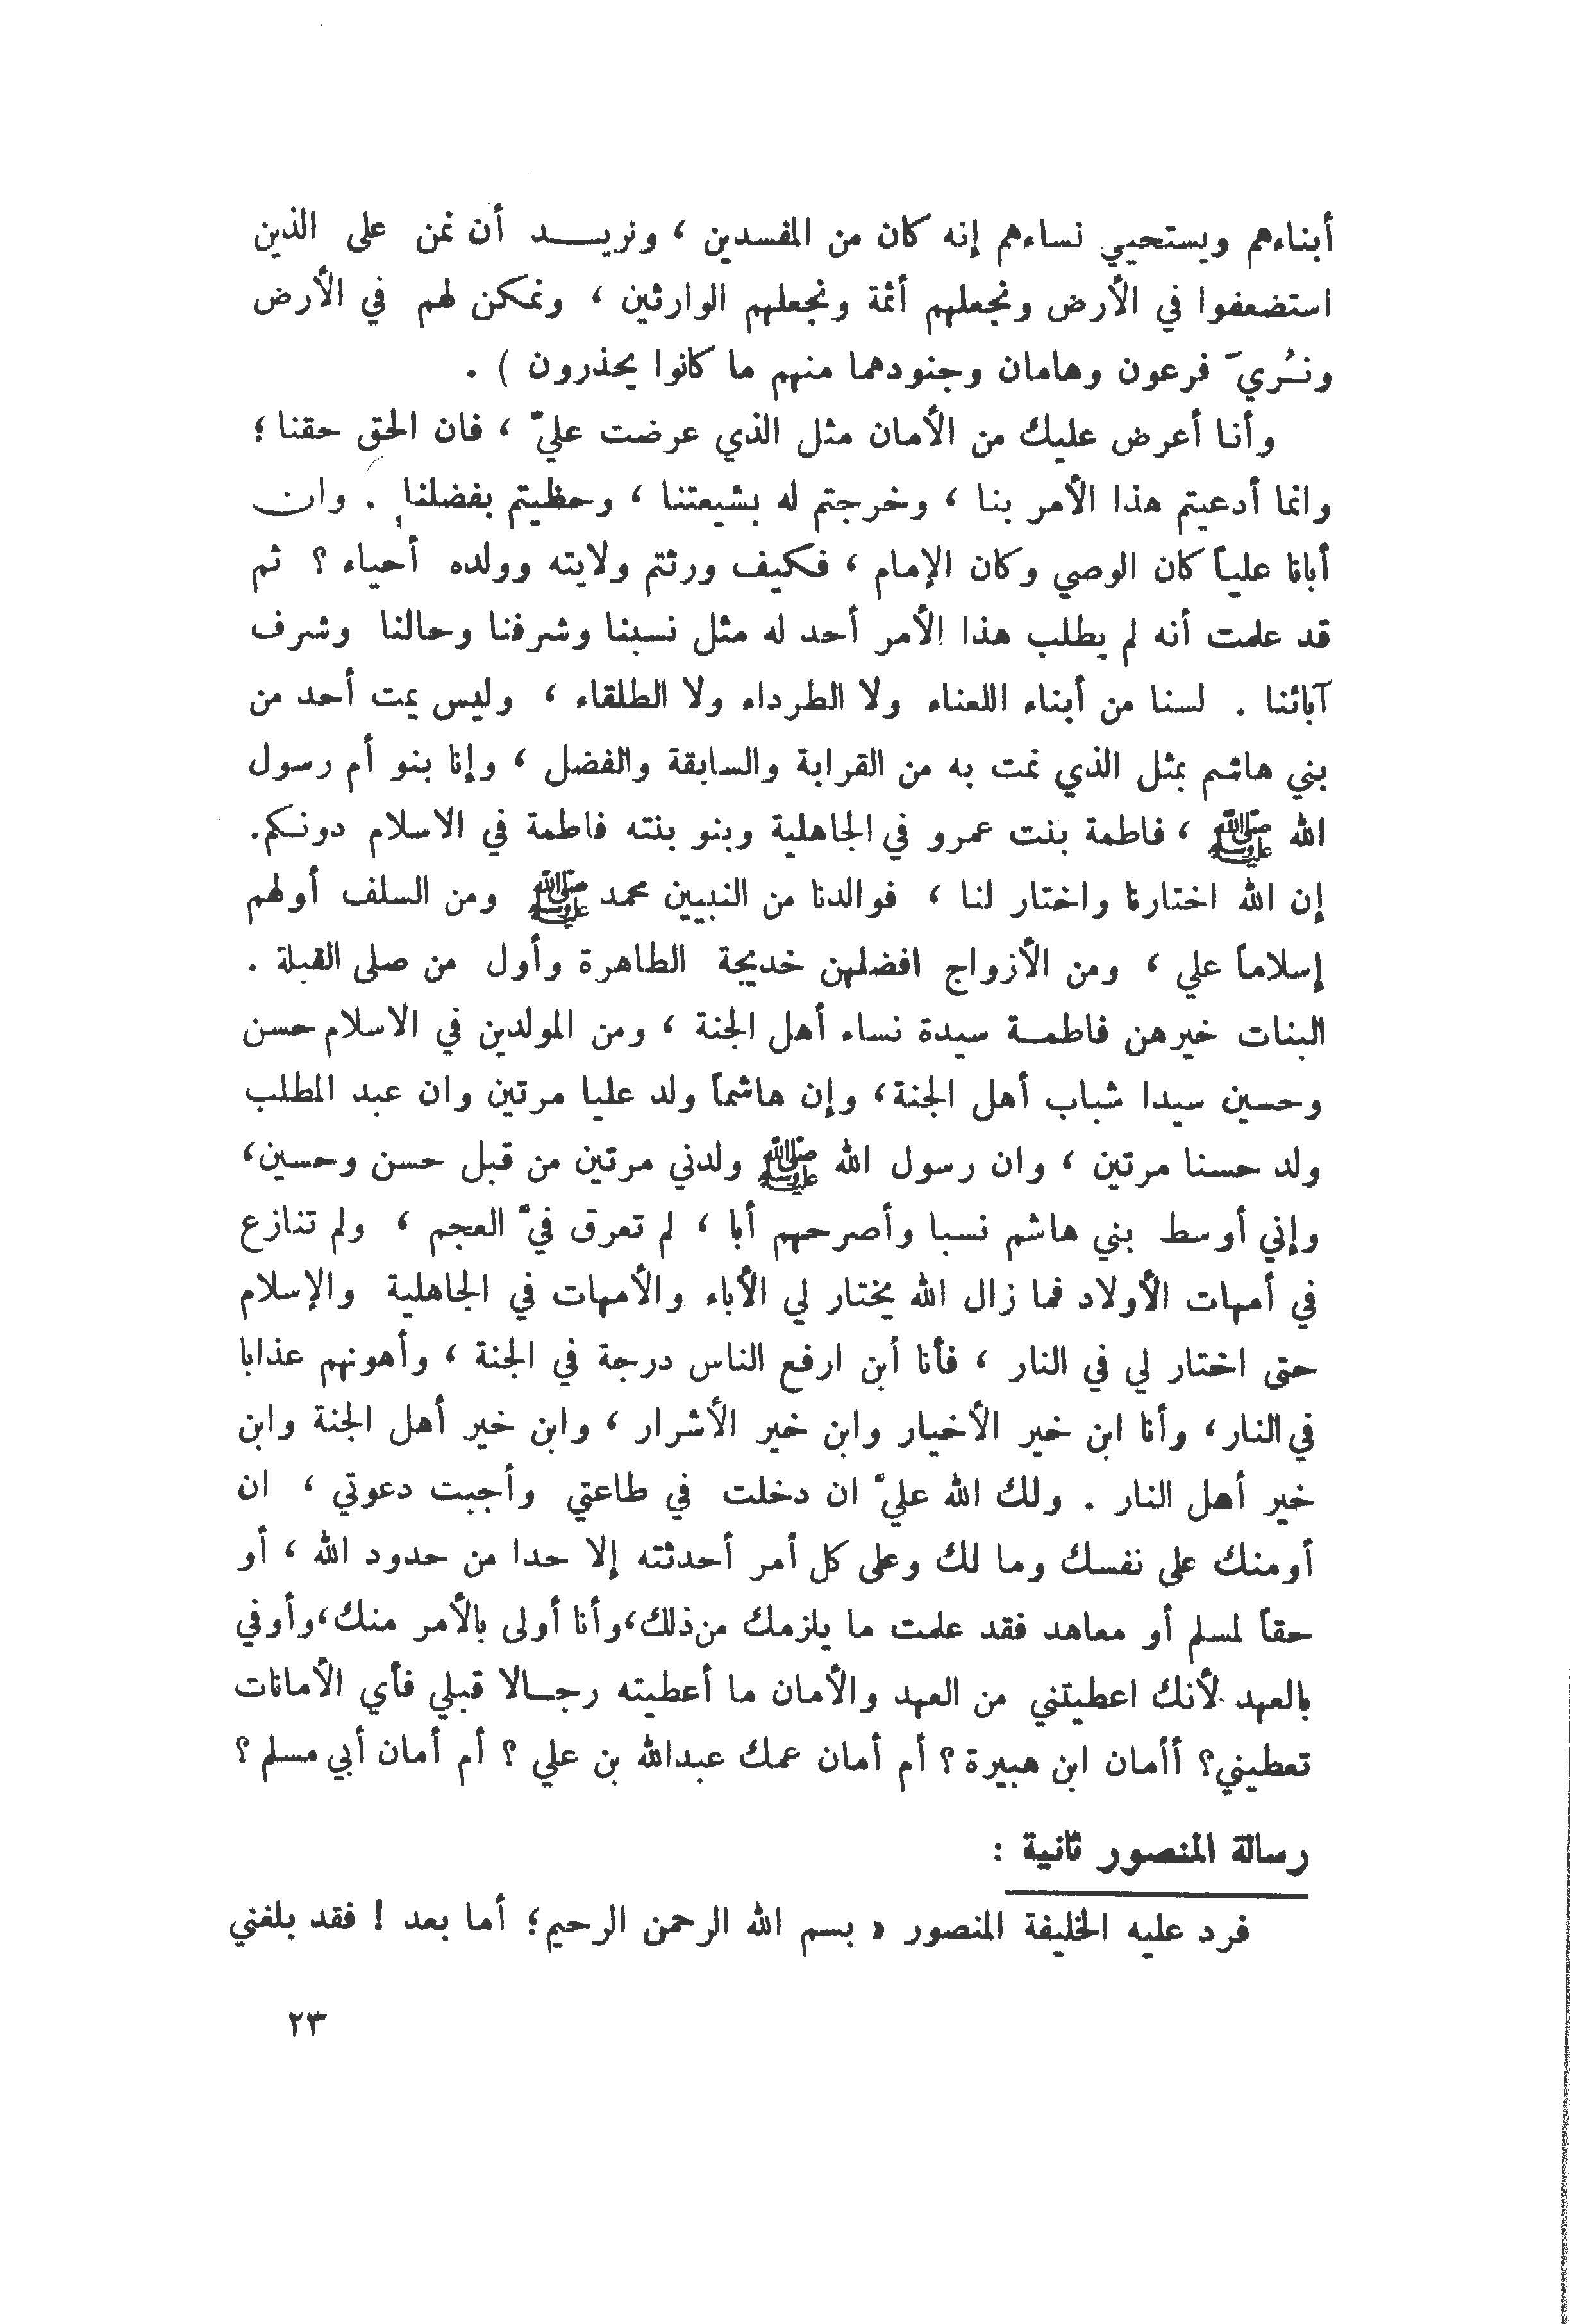 أبناءهم ويستحيي نساءهم إنه كان من المفسدين ، ونريـــد أن نمن على الذين
استضعفوا في الأرض ونجعلهم أئمة ونجعلهم الوارثين ، ونمكن لهم في الأرض
ونُـريَ فرعون وهامان وجنودهما منهم ما كانوا يحذرون ) .
وأنا أعرض عليك من الأمان مثل الذي عرضت عليّ ، فان الحق حقنا ؛
وانما أدعيتم هذا الأمر بنا ، وخرجتم له بشيعتنا ، وحظيتم بفضلنا . وان
أبانا علياً كان الوصي وكان الإمام ، فكيف ورثتم ولايته وولده أحياء ؟ ثم
قد علمت أنه لم يطلب هذا الأمر أحد له مثل نسبنا وشرفنا وحالنا وشرف
آبائنا . لسنا من أبناء اللعناء ولا الطرداء ولا الطلقاء ، وليس يمت أحد من
بني هاشم بمثل الذي نمت به من القرابة والسابقة والفضل ، وإنا بنو أم رسول
الله ﷺ ، فاطمة بنت عمرو في الجاهلية وبنو بنته فاطمة في الاسلام دونكم.
إن الله اختارنا واختار لنا ، فوالدنا من النبيين محمد ﷺ ومن السلف أولهم
إسلاماً علي ، ومن الأزواج افضلهن خديجة الطاهرة وأول من صلى القبلة .
البنات خيرهن فاطمـة سيدة نساء أهل الجنة ، ومن المولدين في الاسلام حسن
وحسين سيدا شباب أهل الجنة، وإن هاشماً ولد عليا مرتين وان عبد المطلب
ولد حسنا مرتين ، وان رسول الله ﷺ ولدني مرتين من قبل حسن وحسين،
وإني أوسط بني هاشم نسبا وأصرحهم أبا ، لم تعرق فيّ العجم ، ولم تنازع
في أمهات الأولاد فما زال الله يختار لي الأباء والأمهات في الجاهلية والإسلام
حتى اختار لي في النار ، فأنا أبن ارفع الناس درجة في الجنة ، وأهونهم عذابا
في النار، وأنا ابن خير الأخيار وابن خير الأشرار ، وابن خير أهل الجنة وابن
خير أهل النار . ولك الله عليّ ان دخلت في طاعتي وأجبت دعوتي ، ان
أومنك على نفسك وما لك وعلى كل أمر أحدثته إلا حدا من حدود الله ، أو
حقاً لمسلم أو معاهد فقد علمت ما يلزمك من ذلك،وأنا أولى بالأمر منك،وأوفي
بالعهد لأنك اعطيتني من العهد والأمان ما أعطيته رجـالا قبلي فأي الأمانات
تعطيني؟ أأمان ابن هبيرة ؟ أم أمان عمك عبدالله بن علي ؟ أم أمان أبي مسلم ؟
رسالة المنصور ثانية :
فرد عليه الخليفة المنصور « بسم الله الرحمن الرحيم؛ أما بعد ! فقد بلغني
٢٣